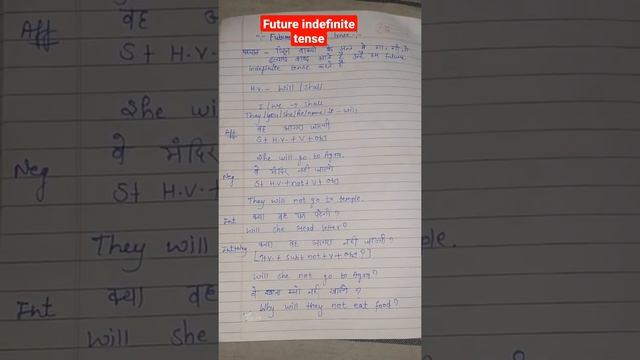 Future indefinite
tense
:- Future tense :-
पहचान - जिन वाक्यों के अन्त में गा, गी, गे
इत्यादि शब्द आते हैं उन्हें हम future
indefinite tense कहते हैं
H.v. - will / shall
I / we → shall
They / you / she / he / name / it - will
Aff वह आगरा जाएगी
S + H.V. + V + obj
She will go to Agra.
Neg वे मंदिर नहीं जाएंगे
S + H.V + not + V + obj
They will not go to temple.
Int क्या वह पत्र पढ़ेगी?
Will she read letter?
Int Neg क्या वह आगरा नहीं जाएगी?
[H.v. + Sub + not + v + obj ?]
Will she not go to Agra?
वे खाना क्यों नहीं खाएंगे?
Why will they not eat food?